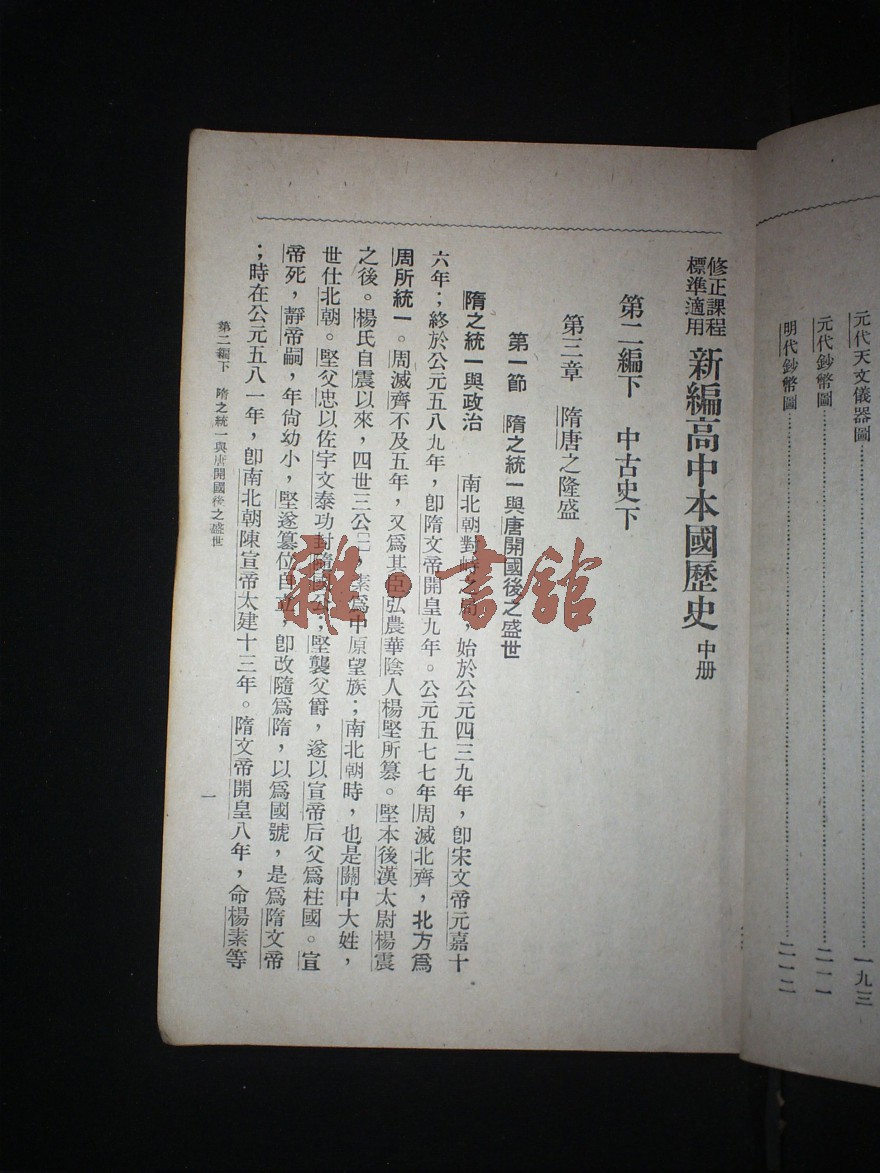 元代天文儀器圖……一九三
元代鈔幣圖……二一一
明代鈔幣圖……二一二
修正課程
標準適用
新編高中本國歷史 中册
第二編下 中古史下
第三章 隋唐之隆盛
第一節 隋之統一與唐開國後之盛世
隋之統一與政治 南北朝對之局，始於公元四三九年，卽宋文帝元嘉十
六年；終於公元五八九年，卽隋文帝開皇九年。公元五七七年周滅北齊，北方爲
周所統一。周滅齊不及五年，又爲其臣弘農華陰人楊堅所篡。堅本後漢太尉楊震
之後。楊氏自震以來，四世三公〔一〕，素爲中原望族；南北朝時，也是關中大姓，
世仕北朝。堅父忠以佐宇文泰功封隨國公；堅襲父爵，遂以宣帝后父爲柱國。宣
帝死，靜帝嗣，年尙幼小，堅遂篡位自立，卽改隨爲隋，以爲國號，是爲隋文帝
；時在公元五八一年，卽南北朝陳宣帝太建十三年。隋文帝開皇八年，命楊素等
第二編下 隋之統一與唐開國後之盛世
一
雜·書館